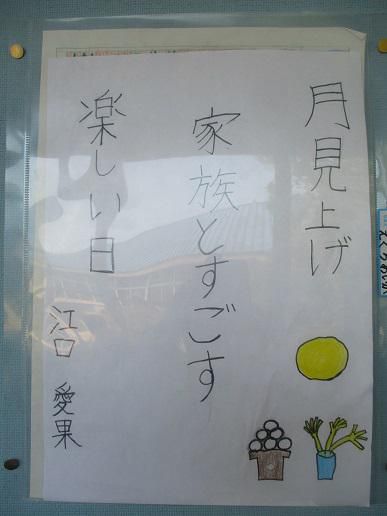 月見上げ
家族とすごす
楽しい日
江口 愛果